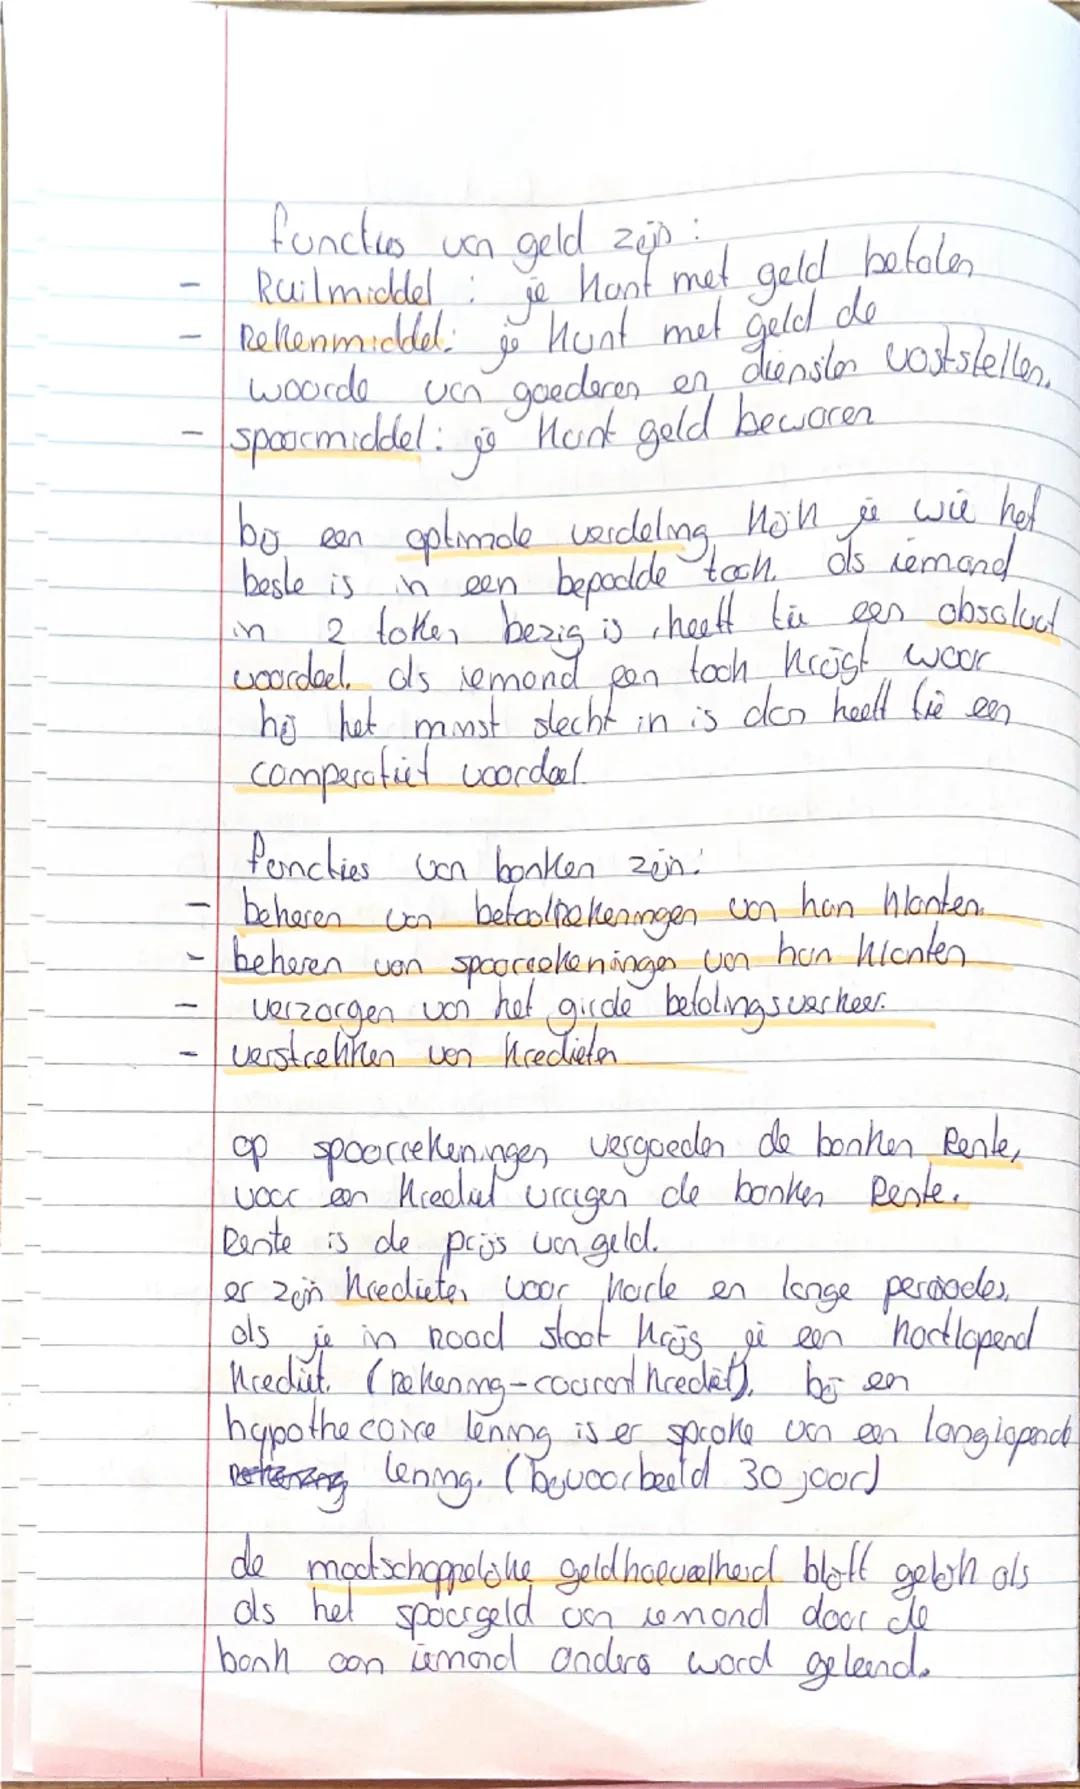 functies van geld zijn :
- Ruilmiddel : je kunt met geld betalen
- Rekenmiddel: je kunt met geld de
waarde van goederen en diensten vaststellen.
- spaarmiddel: je kunt geld bewaren
bij een optimale verdeling kijk je wie het
beste is in een bepaalde taak. als iemand
in 2 taken bezig is, heeft die een absoluut
voordeel. als iemand een taak krijgt waar
hij het minst slecht in is dan heeft die een
comperatief voordeel.
functies van banken zijn:
- beheren van betaalrekeningen van hun klanten.
- beheren van spaarrekeningen van hun klanten
- verzorgen van het girale betalingsverkeer.
- verstrekken van kredieten
op spaarrekeningen vergoeden de banken Rente,
voor een krediet vragen de banken Rente.
Rente is de prijs van geld.
er zijn kredieten voor korte en lange periodes,
als je in rood staat krijg je een kortlopend
krediet. (rekening-courant krediet). bij een
hypothecaire lening is er sprake van een langlopende
lening. (bijvoorbeeld 30 jaar)
de maatschappelijke geldhoeveelheid blijft gelijk als
als het spaargeld van iemand door de
bank aan iemand anders word geleend.